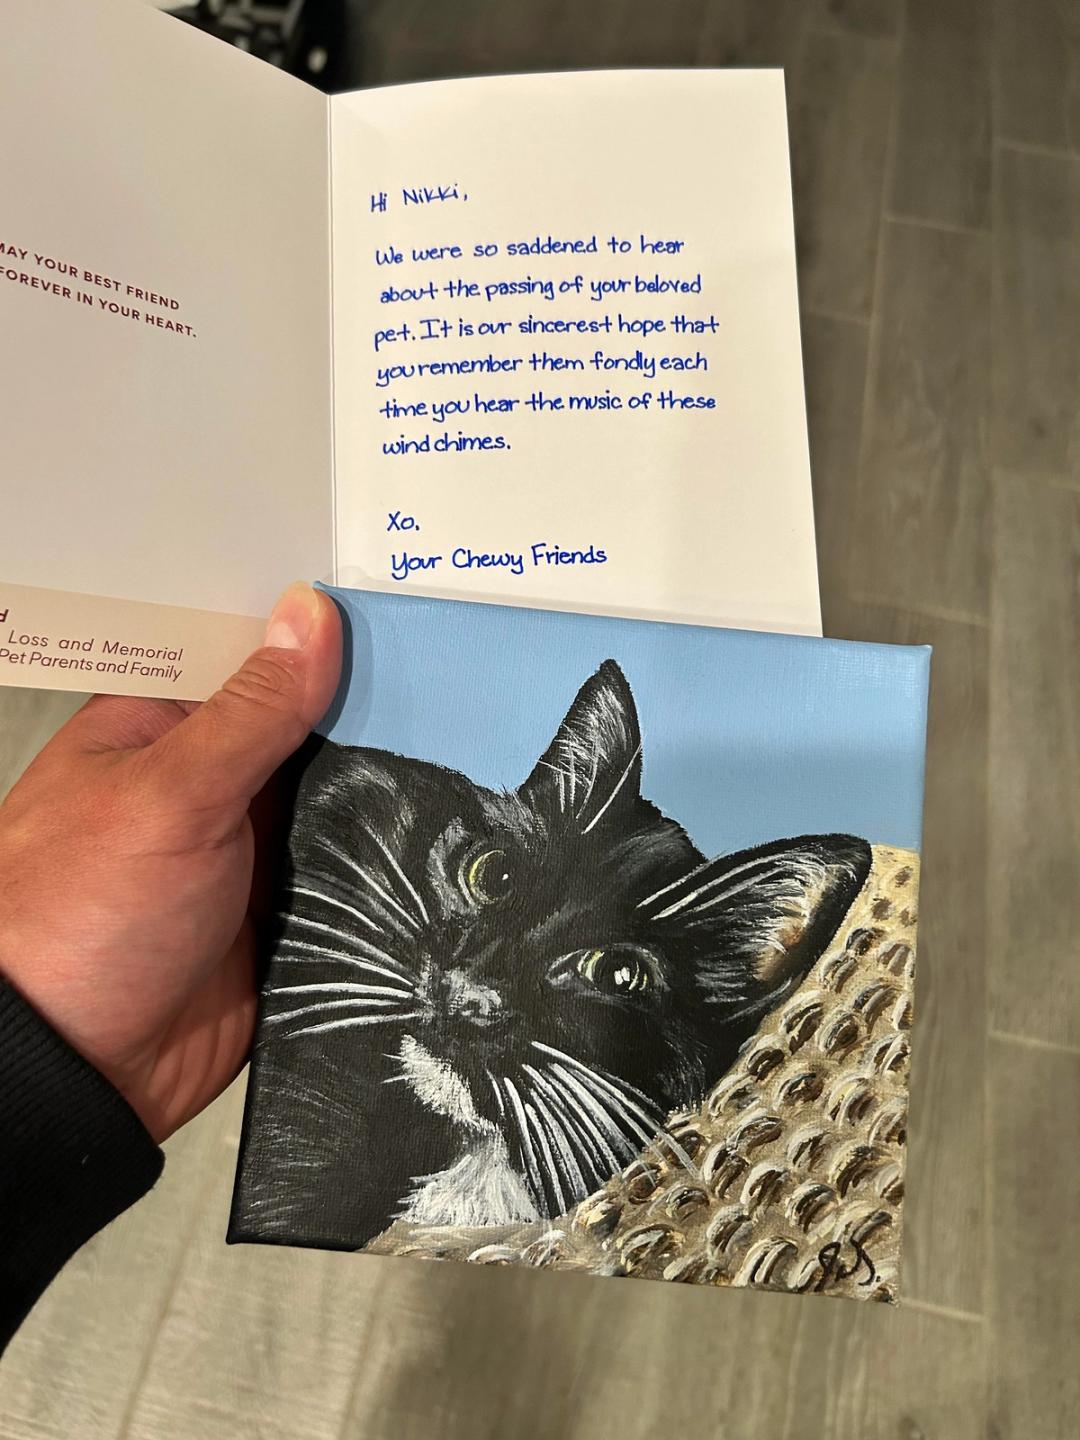 MAY YOUR BEST FRIEND
FOREVER IN YOUR HEART.
Loss and Memorial
Pet Parents and Family
Hi Nikki,
We were so saddened to hear
about the passing of your beloved
pet. It is our sincerest hope that
you remember them fondly each
time you hear the music of these
wind chimes.
Xo,
Your Chewy Friends